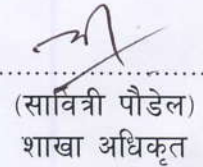 (सावित्री पौडेल)
शाखा अधिकृत